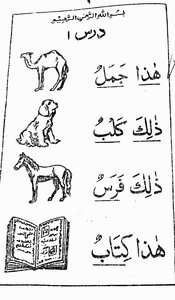 بسم الله الرحمن الرحيم
درس ١
هٰذَا جَمَلٌ
ذٰلِكَ كَلْبٌ
ذٰلِكَ فَرَسٌ
هٰذَا كِتَابٌ